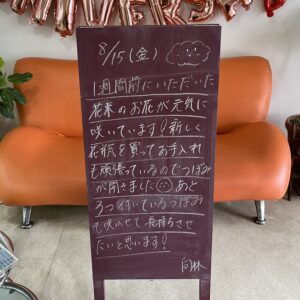 8/15(金)
1週間前にいただいた
花束のお花が元気に
咲いています!新しく
花瓶を買ってお手入れ
も頑張っているのでつぼみ
が開きました あと
3つ付いているつぼみ
も咲かせて長持ちさせ
たいと思います!